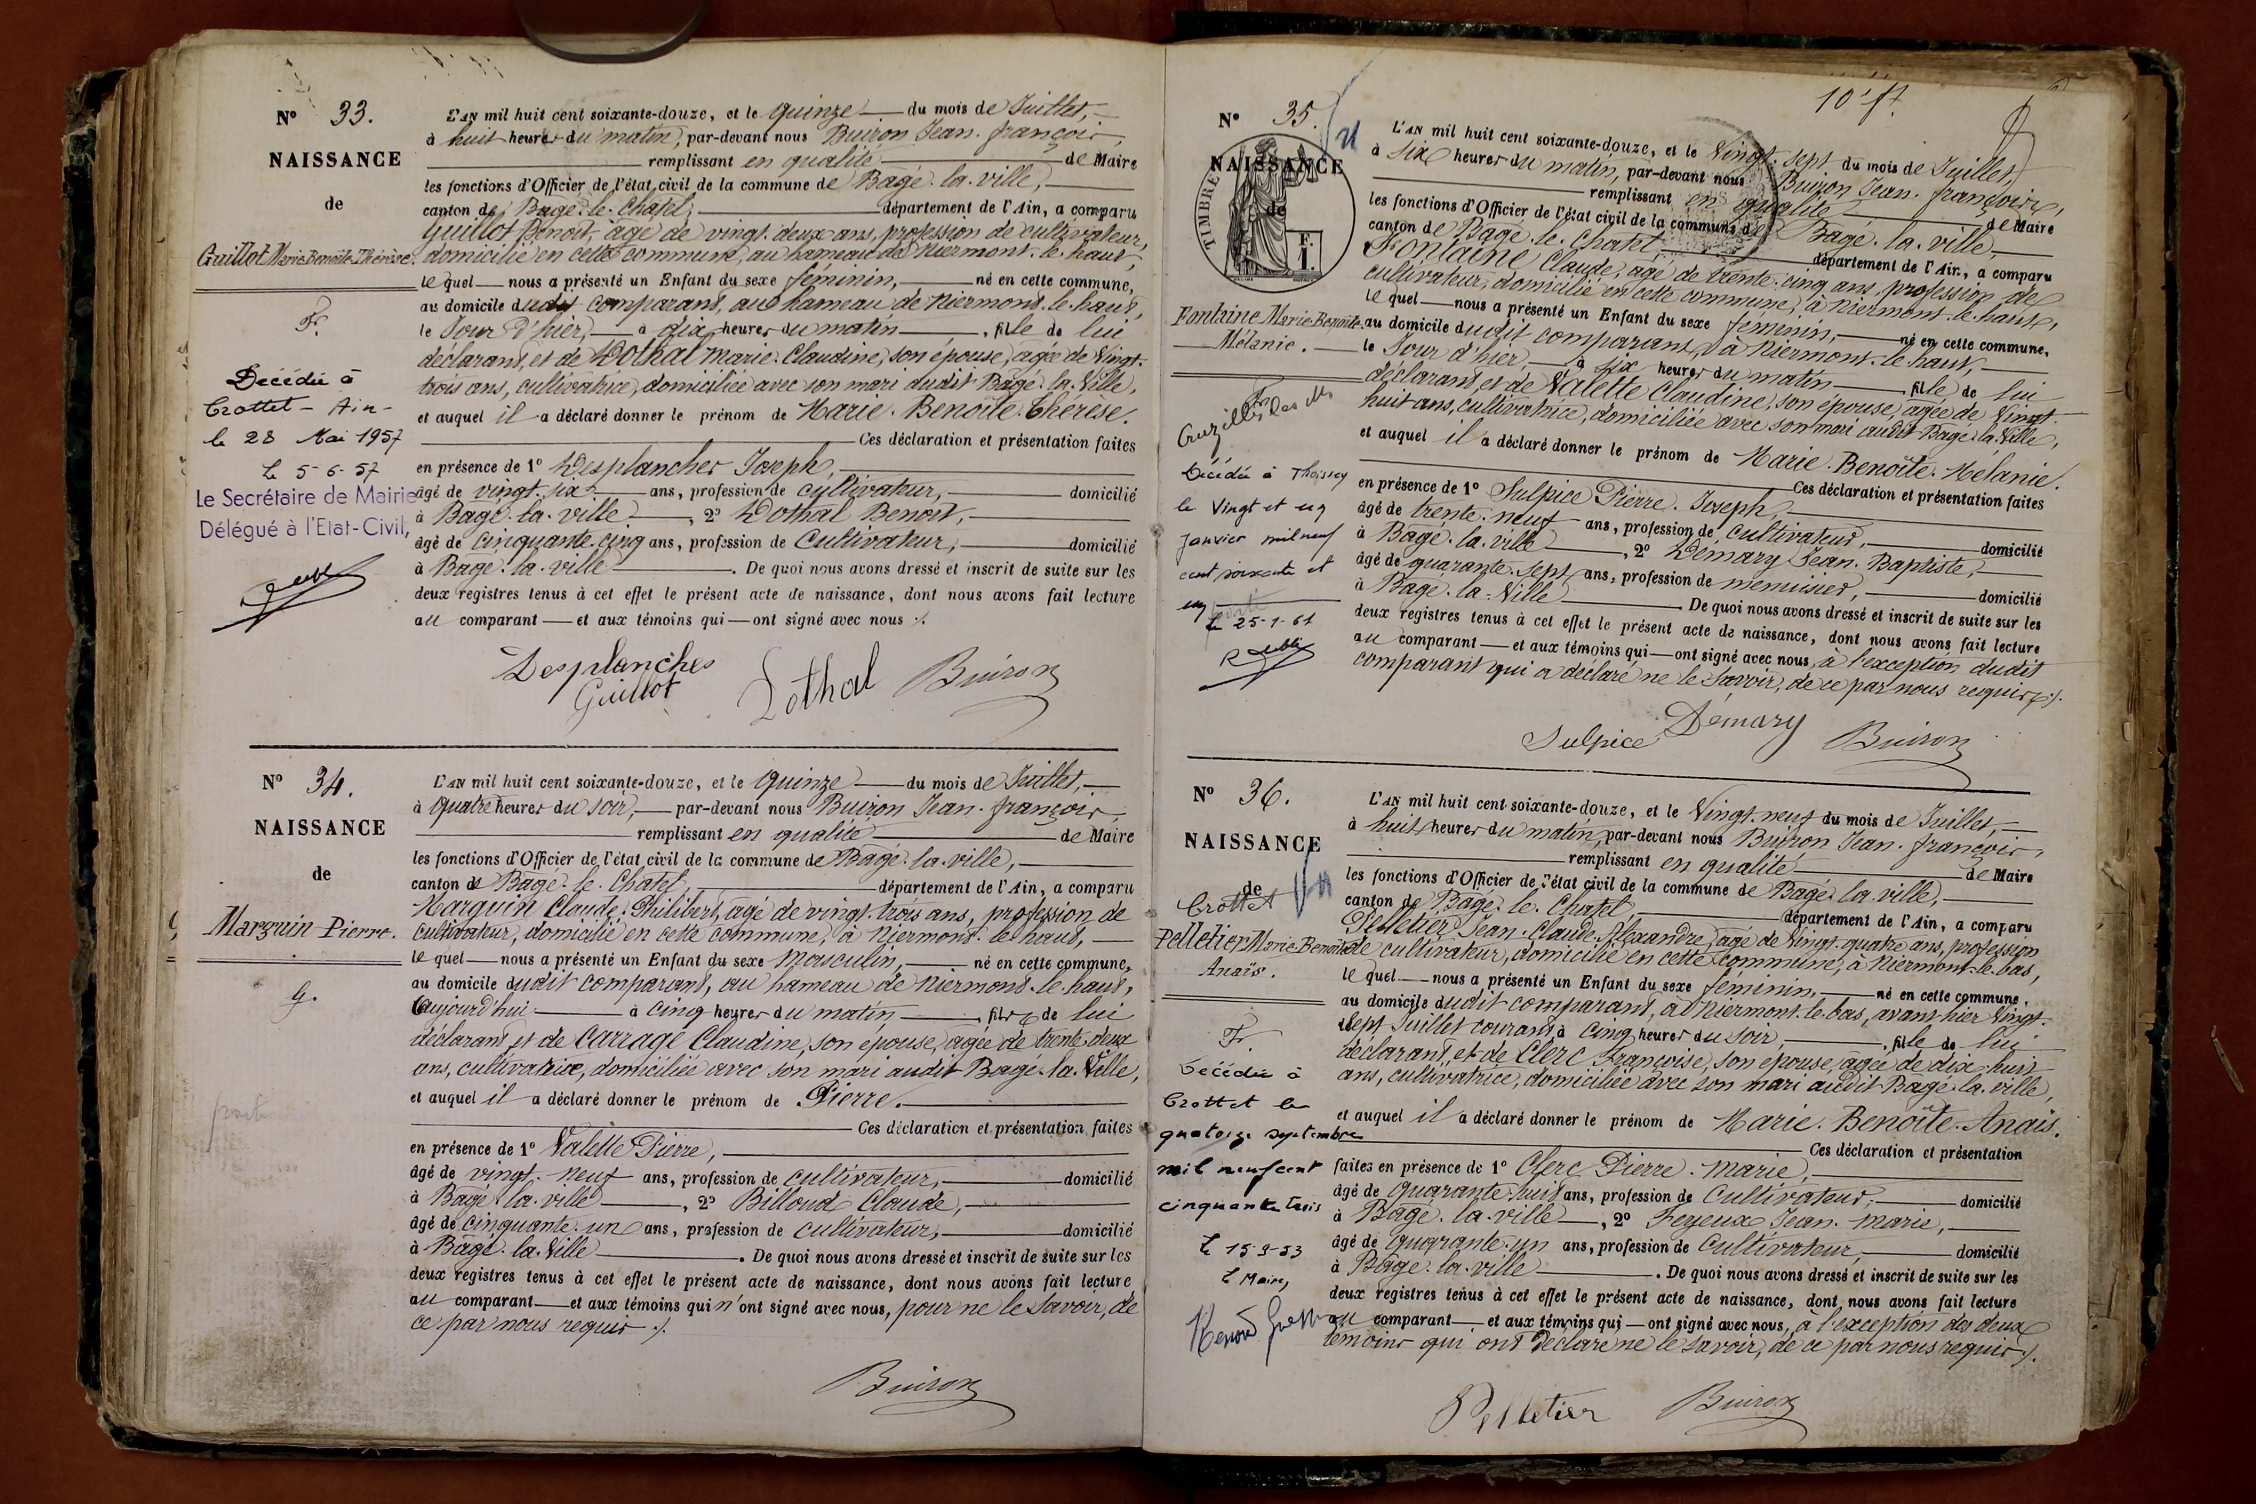 N° 33.
NAISSANCE
de
Guillot Marie Benoîte Thérèse.
F.
Décédée à
Crottet - Ain -
le 28 Mai 1957
Le 5-6-57
Le Secrétaire de Mairie
Délégué à l'Etat-Civil,
L'AN mil huit cent soixante-douze, et le quinze du mois de Juillet,
à huit heures du matin, par-devant nous Buiron Jean-françois,
remplissant en qualité de Maire
les fonctions d'Officier de l'état civil de la commune de Bagé-la-ville,
canton de Bagé-le-Chatel, département de l'Ain, a comparu
Guillot Benoit, âgé de vingt-deux ans, profession de cultivateur,
domicilié en cette commune, au hameau de Niermont-le-haut,
lequel nous a présenté un Enfant du sexe féminin, né en cette commune,
au domicile dudit comparant, au hameau de Niermont-le-haut,
le Jour d'hier, à dix heures du matin, fille de lui
déclarant, et de Dothal Marie-Claudine, son épouse, âgée de Vingt-
trois ans, cultivatrice, domiciliée avec son mari audit Bagé-la-Ville,
et auquel il a déclaré donner le prénom de Marie-Benoîte-Thérèse.
Ces déclaration et présentation faites
en présence de 1° Desplanches Joseph,
âgé de vingt-six ans, profession de cultivateur, domicilié
à Bagé-la-ville, 2° Dothal Benoit,
âgé de cinquante-cinq ans, profession de Cultivateur, domicilié
à Bagé-la-ville. De quoi nous avons dressé et inscrit de suite sur les
deux registres tenus à cet effet le présent acte de naissance, dont nous avons fait lecture
au comparant et aux témoins qui ont signé avec nous ./.
Desplanches
Guillot
Dothal
Buiron
N° 34.
NAISSANCE
de
Marguin Pierre.
G.
L'AN mil huit cent soixante-douze, et le quinze du mois de Juillet,
à quatre heures du soir, par-devant nous Buiron Jean-françois,
remplissant en qualité de Maire
les fonctions d'Officier de l'état civil de la commune de Bagé-la-ville,
canton de Bagé-le-Chatel, département de l'Ain, a comparu
Marguin Claude-Philibert, âgé de vingt-trois ans, profession de
cultivateur, domicilié en cette commune, à Niermont-le-haut,
lequel nous a présenté un Enfant du sexe Masculin, né en cette commune,
au domicile dudit comparant, au hameau de Niermont-le-haut,
aujourd'hui à cinq heures du matin, fils de lui
déclarant, et de Carrage Claudine, son épouse, âgée de trente-deux
ans, cultivatrice, domiciliée avec son mari audit Bagé-la-Ville,
et auquel il a déclaré donner le prénom de Pierre.
Ces déclaration et présentation faites
en présence de 1° Valette Pierre,
âgé de vingt-neuf ans, profession de cultivateur, domicilié
à Bagé-la-ville, 2° Billoud Claude,
âgé de cinquante-un ans, profession de cultivateur, domicilié
à Bagé-la-Ville. De quoi nous avons dressé et inscrit de suite sur les
deux registres tenus à cet effet le présent acte de naissance, dont nous avons fait lecture
au comparant et aux témoins qui n'ont signé avec nous, pour ne le Savoir, de
ce par nous requis ./.
Buiron
N° 35.
NAISSANCE
de
TIMBRE
F.
1.
Fontaine Marie Benoîte
Mélanie.
F.
Décédée à Thoissey
le Vingt et un
Janvier mil neuf
cent soixante et
un
Le 25-1-61
L'AN mil huit cent soixante-douze, et le Vingt-sept du mois de Juillet,
à Six heures du matin, par-devant nous Buiron Jean-françois,
remplissant en qualité de Maire
les fonctions d'Officier de l'état civil de la commune de Bagé-la-ville,
canton de Bagé-le-Chatel département de l'Ain, a comparu
Fontaine Claude, âgé de trente-cinq ans, profession de
cultivateur, domicilié en cette commune, à Niermont-le-haut,
lequel nous a présenté un Enfant du sexe féminin, né en cette commune,
au domicile dudit comparant, à Niermont-le-haut,
le Jour d'hier, à six heures du matin fille de lui
déclarant, et de Valette Claudine, son épouse, âgée de Vingt-
huit ans, cultivatrice, domiciliée avec son mari audit Bagé-la-Ville,
et auquel il a déclaré donner le prénom de Marie-Benoîte-Mélanie.
Ces déclaration et présentation faites
en présence de 1° Sulpice Pierre-Joseph,
âgé de trente-neuf ans, profession de cultivateur, domicilié
à Bagé-la-ville, 2° Demary Jean-Baptiste,
âgé de quarante-sept ans, profession de menuisier, domicilié
à Bagé-la-Ville. De quoi nous avons dressé et inscrit de suite sur les
deux registres tenus à cet effet le présent acte de naissance, dont nous avons fait lecture
au comparant et aux témoins qui ont signé avec nous, à l'exception dudit
comparant qui a déclaré ne le Savoir, de ce par nous requis ./.
Sulpice
Démary
Buiron
N° 36.
NAISSANCE
de
Crottet
Pelletier Marie Benoîte
Anaïs.
F.
Décédée à
Crottet le
quatorze septembre
mil neuf cent
cinquante trois
Le 15-9-53
Le Maire,
L'AN mil huit cent soixante-douze, et le Vingt-neuf du mois de Juillet,
à huit heures du matin, par-devant nous Buiron Jean-françois,
remplissant en qualité de Maire
les fonctions d'Officier de l'état civil de la commune de Bagé-la-ville,
canton de Bagé-le-Chatel, département de l'Ain, a comparu
Pelletier Jean-Claude-Alexandre, âgé de Vingt-quatre ans, profession
de cultivateur, domicilié en cette commune, à Niermont-le-bas,
lequel nous a présenté un Enfant du sexe féminin, né en cette commune,
au domicile dudit comparant, à Niermont-le-bas, avant-hier Vingt-
sept Juillet courant à cinq heures du soir, fille de lui
déclarant, et de Clerc Françoise, son épouse, âgée de dix-huit
ans, cultivatrice, domiciliée avec son mari audit Bagé-la-ville,
et auquel il a déclaré donner le prénom de Marie-Benoîte-Anaïs.
Ces déclaration et présentation
faites en présence de 1° Clerc Pierre-Marie,
âgé de quarante-huit ans, profession de Cultivateur, domicilié
à Bagé-la-ville, 2° Feyeux Jean-Marie,
âgé de quarante-un ans, profession de Cultivateur, domicilié
à Bagé-la-ville. De quoi nous avons dressé et inscrit de suite sur les
deux registres tenus à cet effet le présent acte de naissance, dont nous avons fait lecture
au comparant et aux témoins qui ont signé avec nous, à l'exception des deux
témoins qui ont déclaré ne le Savoir, de ce par nous requis ./.
Pelletier
Buiron